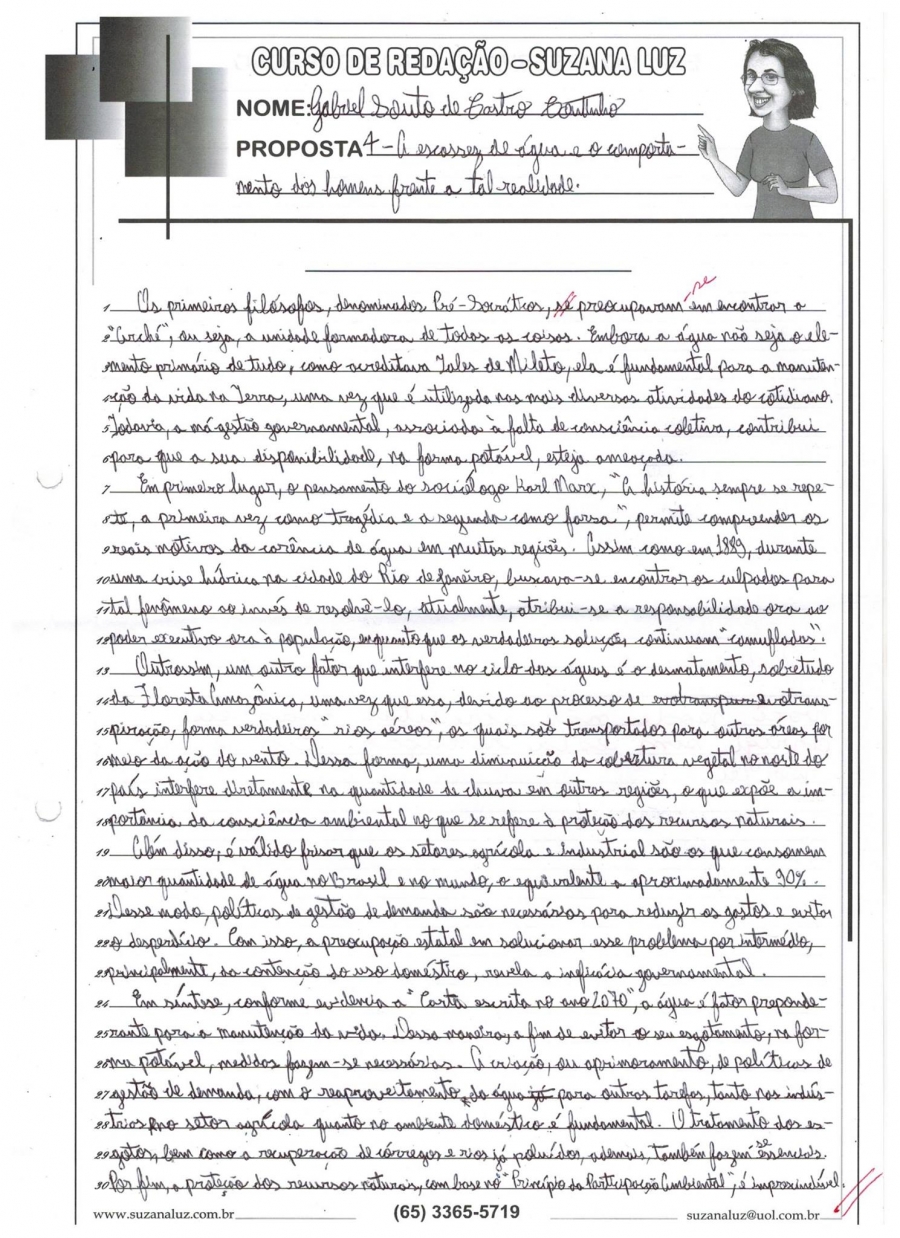 CURSO DE REDAÇÃO - SUZANA LUZ
NOME: Gabriel Souto de Castro Coutinho
PROPOSTA 4 - A escassez de água e o comporta-
mento dos homens frente a tal realidade.
1 Os primeiros filósofos, denominados Pré-Socráticos, se preocupavam -se em encontrar a
2 "Arché", ou seja, a unidade formadora de todas as coisas. Embora a água não seja o ele-
3 mento primário de tudo, como acreditava Tales de Mileto, ela é fundamental para a manuten-
4 ção da vida na Terra, uma vez que é utilizada nas mais diversas atividades do cotidiano.
5 Todavia, a má gestão governamental, associada à falta de consciência coletiva, contribui
6 para que a sua disponibilidade, na forma potável, esteja ameaçada.
7 Em primeiro lugar, o pensamento do sociólogo Karl Marx, "A história sempre se repe-
8 te, a primeira vez como tragédia e a segunda como farsa", permite compreender os
9 reais motivos da carência de água em muitas regiões. Assim como em 1889, durante
10 uma crise hídrica na cidade do Rio de Janeiro, buscava-se encontrar os culpados para
11 tal fenômeno ao invés de resolvê-lo, atualmente, atribui-se a responsabilidade ora ao
12 poder executivo ora à população, enquanto que as verdadeiras soluções continuam "camufladas".
13 Outrossim, um outro fator que interfere no ciclo das águas é o desmatamento, sobretudo
14 da Floresta Amazônica, uma vez que essa, devido ao processo de evotranspira evotrans-
15 piração, forma verdadeiros "rios aéreos", os quais são transportados para outras áreas por
16 meio da ação do vento. Dessa forma, uma diminuição da cobertura vegetal no norte do
17 país interfere diretamente na quantidade de chuva em outras regiões, o que expõe a im-
18 portância da consciência ambiental no que se refere à proteção dos recursos naturais.
19 Além disso, é válido frisar que os setores agrícola e industrial são os que consomem
20 maior quantidade de água no Brasil e no mundo, o equivalente a aproximadamente 90%.
21 Desse modo, políticas de gestão de demanda são necessárias para reduzir os gastos e evitar
22 o desperdício. Com isso, a preocupação estatal em solucionar esse problema por intermédio,
23 principalmente, da contenção do uso doméstico, revela a ineficácia governamental.
24 Em síntese, conforme evidencia a "Carta escrita no ano 2070", a água é fator preponde-
25 rante para a manutenção da vida. Dessa maneira, a fim de evitar o seu esgotamento, na for-
26 ma potável, medidas fazem-se necessárias. A criação, ou aprimoramento, de políticas de
27 gestão de demanda, com o reaproveitamento da água para outras tarefas, tanto nas indús-
28 trias e no setor agrícola quanto no ambiente doméstico é fundamental. O tratamento dos es-
29 gotos, bem como a recuperação de córregos e rios já poluídos, ademais, também fazem se essenciais.
30 Por fim, a proteção dos recursos naturais, com base no "Princípio da Participação Ambiental", é imprescindível.
www.suzanaluz.com.br (65) 3365-5719 suzanaluz@uol.com.br